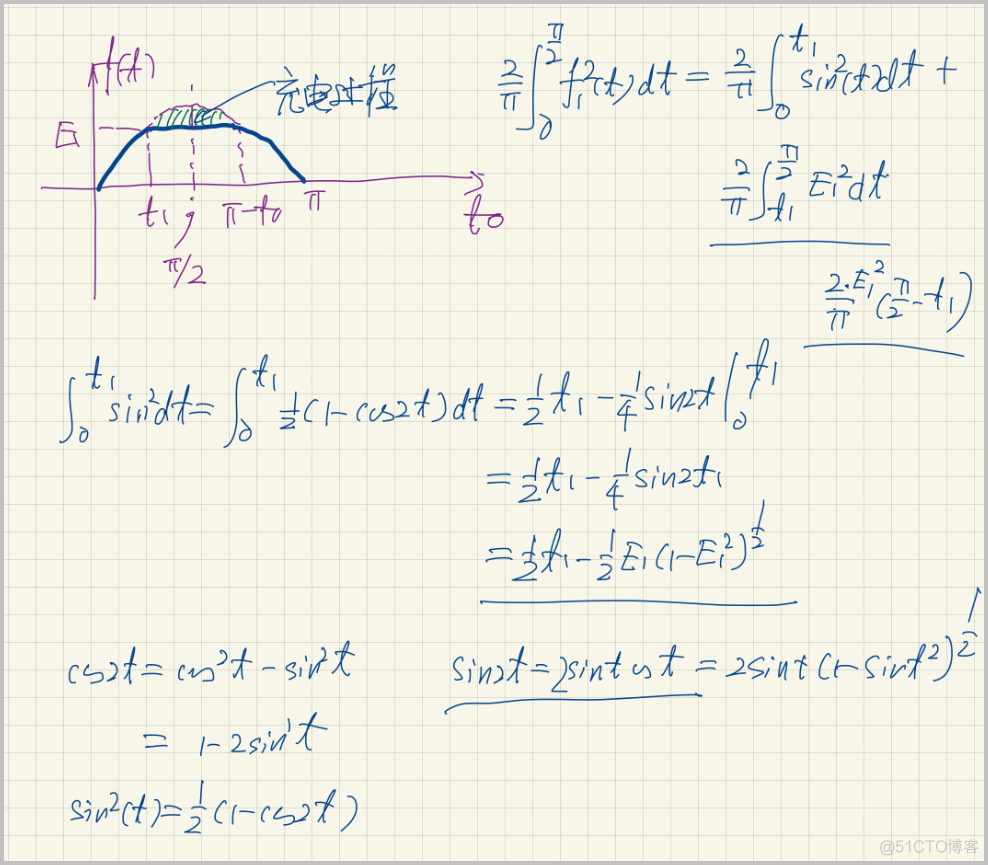 f(t)
充电过程
E₁
t₁ π-t₀ π
t₀
π/2
2/π ∫₀^(π/2) f₁²(t)dt = 2/π ∫₀^(t₁) sin²(t)dt +
2/π ∫_(t₁)^(π/2) E₁²dt
2·E₁²/π (π/2 - t₁)
∫₀^(t₁) sin²dt = ∫₀^(t₁) 1/2 (1-cos2t)dt = 1/2 t₁ - 1/4 sin2t |₀^(t₁)
= 1/2 t₁ - 1/4 sin2t₁
= 1/2 t₁ - 1/2 E₁(1-E₁²)^(1/2)
cos2t = cos²t - sin²t
sin2t = 2sint cos t = 2sint(1-sint²)^(1/2)
= 1-2sin²t
sin²(t) = 1/2 (1-cos2t)
@51CTO博客